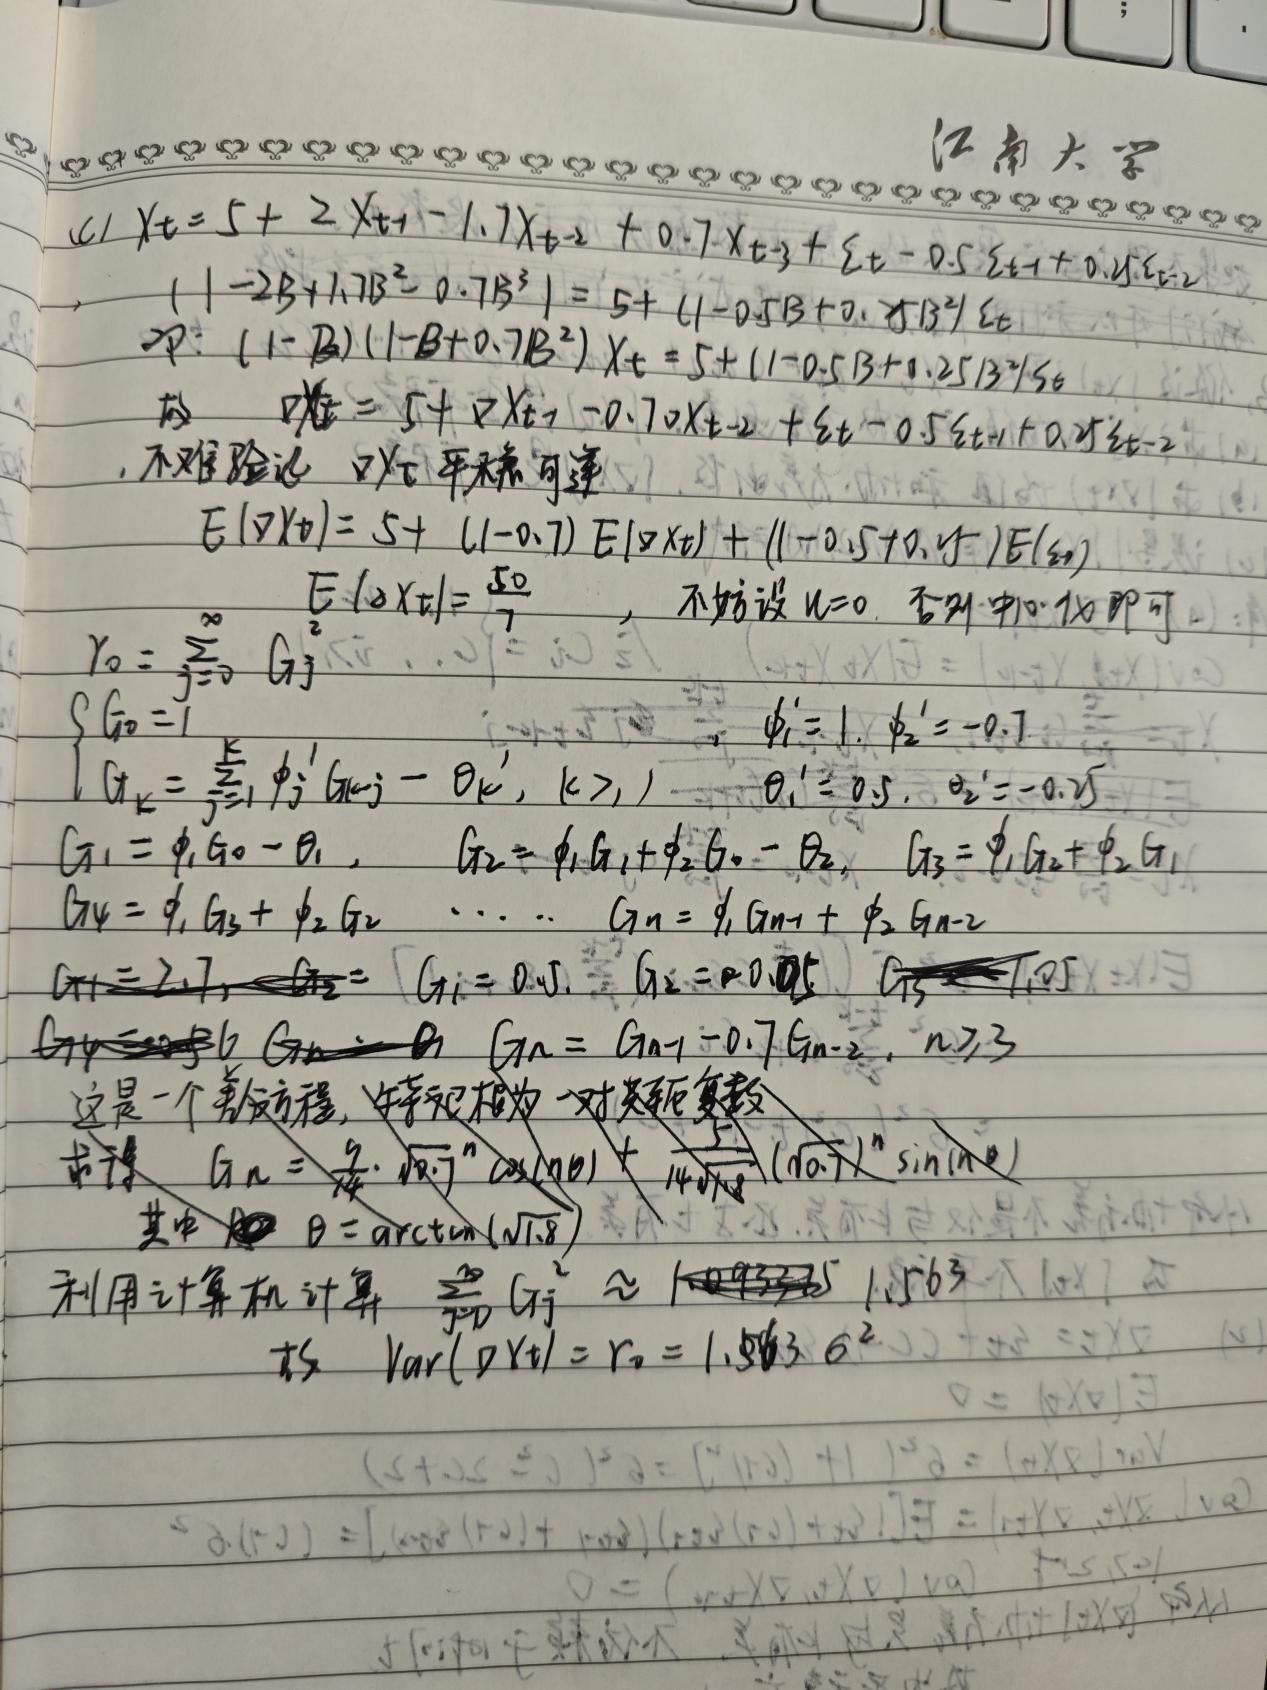 江南大学
(c) Xt = 5 + 2Xt-1 - 1.7Xt-2 + 0.7Xt-3 + εt - 0.5εt-1 + 0.25εt-2
(1-2B+1.7B²-0.7B³) = 5 + (1-0.5B+0.25B²)εt
即: (1-B)(1-B+0.7B²)Xt = 5+(1-0.5B+0.25B²)εt
故 ∇Xt = 5 + ∇Xt-1 - 0.7∇Xt-2 + εt - 0.5εt-1 + 0.25εt-2
不难验证 ∇Xt 平稳可逆
E(∇Xt) = 5 + (1-0.7)E(∇Xt) + (1-0.5+0.25)E(εt)
E(∇Xt) = 50/7 , 不妨设 u=0. 否则 中心化即可
r0 = ∑_{j=0}^{∞} Gj²
G0 = 1 , φ1' = 1. φ2' = -0.7
Gk = ∑_{j=1}^{k} φj' Gk-j - θk', k≥1 θ1' = 0.5. θ2' = -0.25
G1 = φ1G0 - θ1, G2 = φ1G1 + φ2G0 - θ2, G3 = φ1G2 + φ2G1
G4 = φ1G3 + φ2G2 ..... Gn = φ1Gn-1 + φ2Gn-2
G1 = 0.5. G2 = 0.05
Gn = Gn-1 - 0.7Gn-2, n≥3
这是一个差分方程, 特征根为一对共轭复数
求得 Gn = (√0.7)ⁿ cos(nθ) + 5/(14√1.8) (√0.7)ⁿ sin(nθ)
其中 θ = arctan(√1.8)
利用计算机计算 ∑_{j=0}^{∞} Gj² ≈ 1.563
故 Var(∇Xt) = r0 = 1.563 σ²